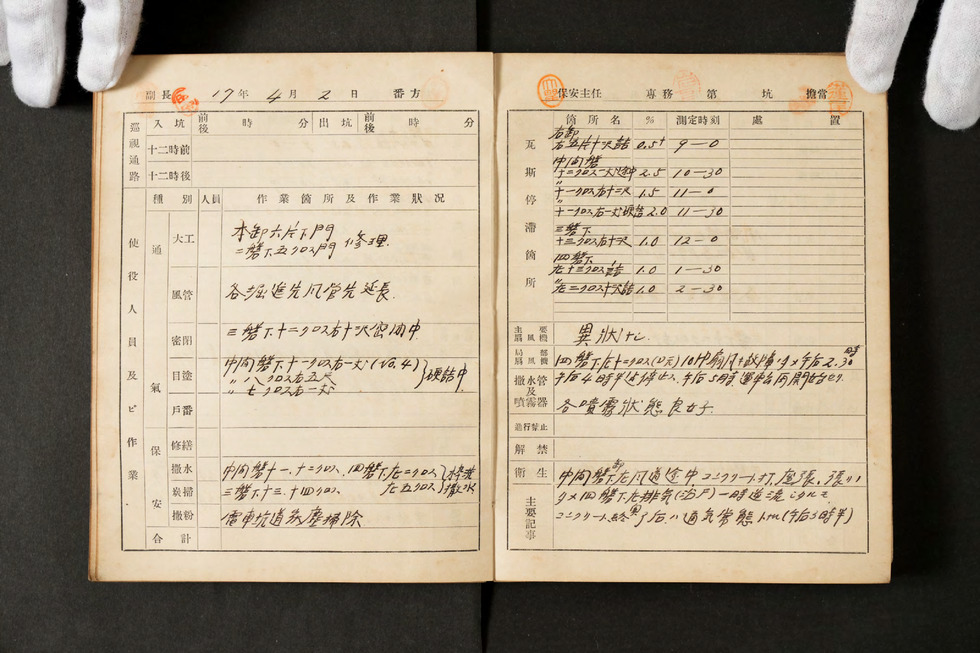 副長 17年4月2日 番方
巡視通路 入坑 前後 時 分 出坑 前後 時 分
十二時前
十二時後
種別 人員 作業箇所及作業狀況
使役人員及ビ作業
通氣
大工 本卸六片下門
二磐下五クロス門 修理
風管 各堀進先風管先延長
密閉 三磐下十二クロス右十尺密閉中
目塗 中間磐下十一クロス右一丈(No.4)
〃 八クロス右五尺
〃 七クロス右一丈
硬詰中
戸番
保安
修繕
撒水 中間磐十一、十二クロス、四磐下左二クロス
炭掃 三磐下十三、十四クロス 左五クロス
撒水
撒粉 電車坑道炭塵掃除
合計
保安主任 専務 第 坑 擔當
瓦斯停滯箇所
箇所名 % 測定時刻 處置
右卸
右五片十尺詰 0.5+ 9-0
中間磐
十二クロス一丈途中 2.5 10-30
十一クロス右十二尺 1.5 11-0
十一クロス右一丈硬詰 2.0 11-30
三磐下
十三クロス右十尺 1.0 12-0
四磐下
左十三クロス詰 1.0 1-30
〃左三クロス十尺詰 1.0 2-30
主要扇風機 異狀ナシ
局部扇風機 四磐下左十二クロス 扇風キ故障ノタメ午后2.30時
撒水管及噴霧器
午后4時半迄停止、午后5時運轉再開始セリ
各噴霧狀態良好
進行禁止
解禁
衛生
主要記事
中間磐卸左風道途中コンクリート打
タメ四磐下左排氣 一時逆流シタルモ
コンクリート終了后ハ通気常態トナル(午后3時半)